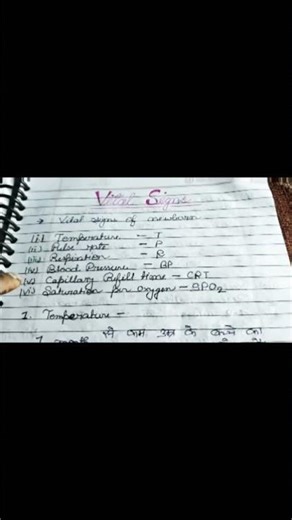 Vital Signs
→ Vital signs of newborn
(i) Temperature - T
(ii) Pulse rate - P
(iii) Respiration - R
(iv) Blood Pressure - BP
(v) Capillary Refill Time - CRT
(vi) Saturation for oxygen - SPO2
1. Temperature -
से कम उम्र के बच्चे का